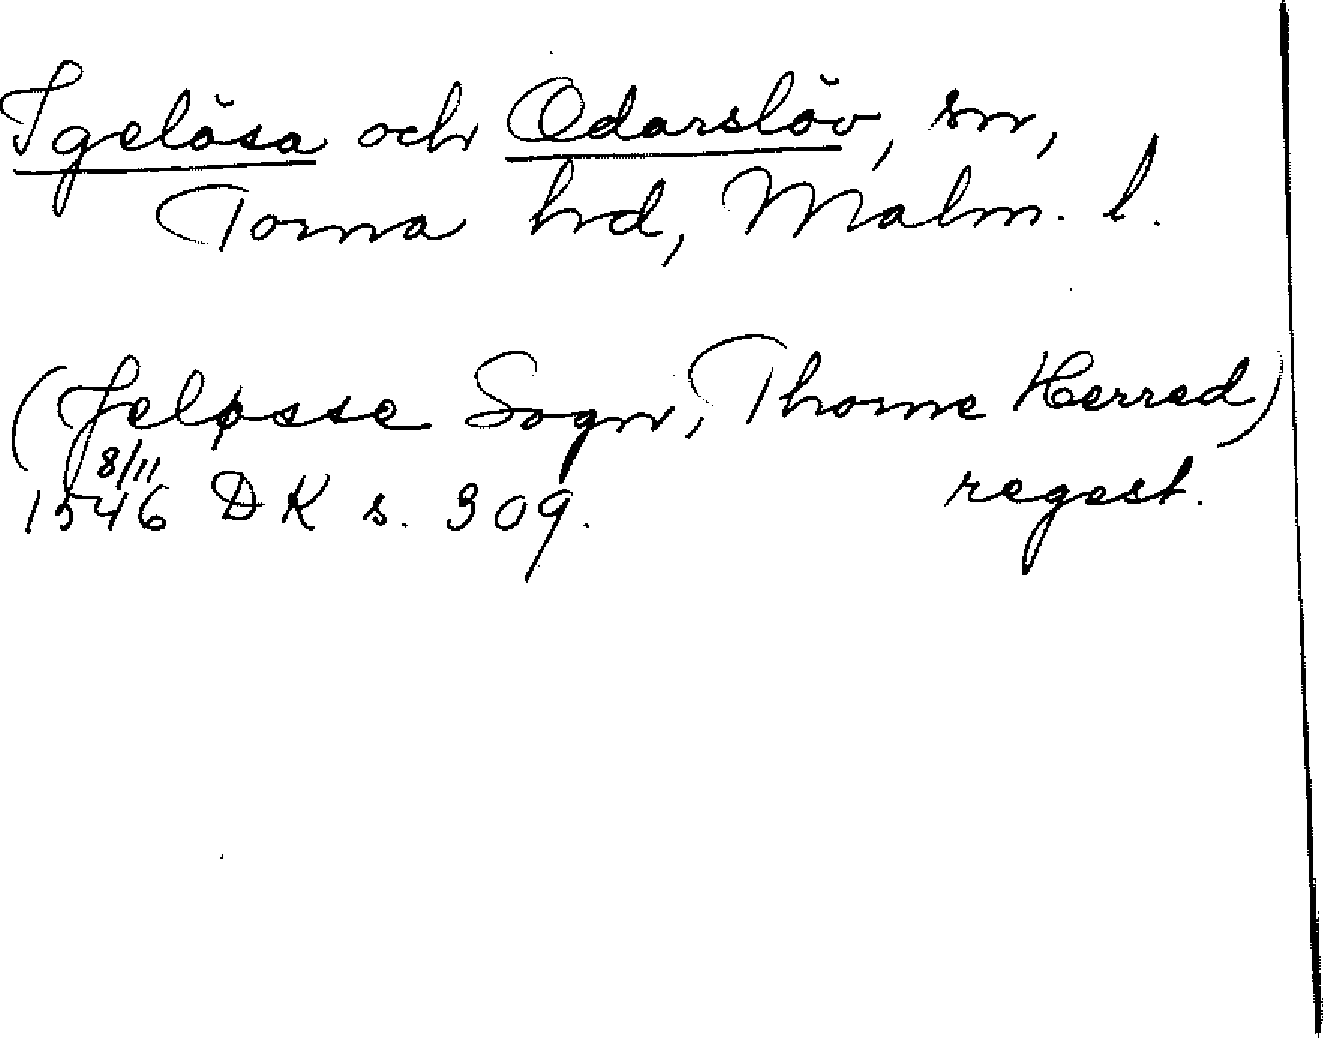 Igelösa och Odarslöv, sn,
Torna hd, Malm. l.
(Jeløsse Sogn, Thorne Herred)
1546 8/11 DK s. 309. regest.